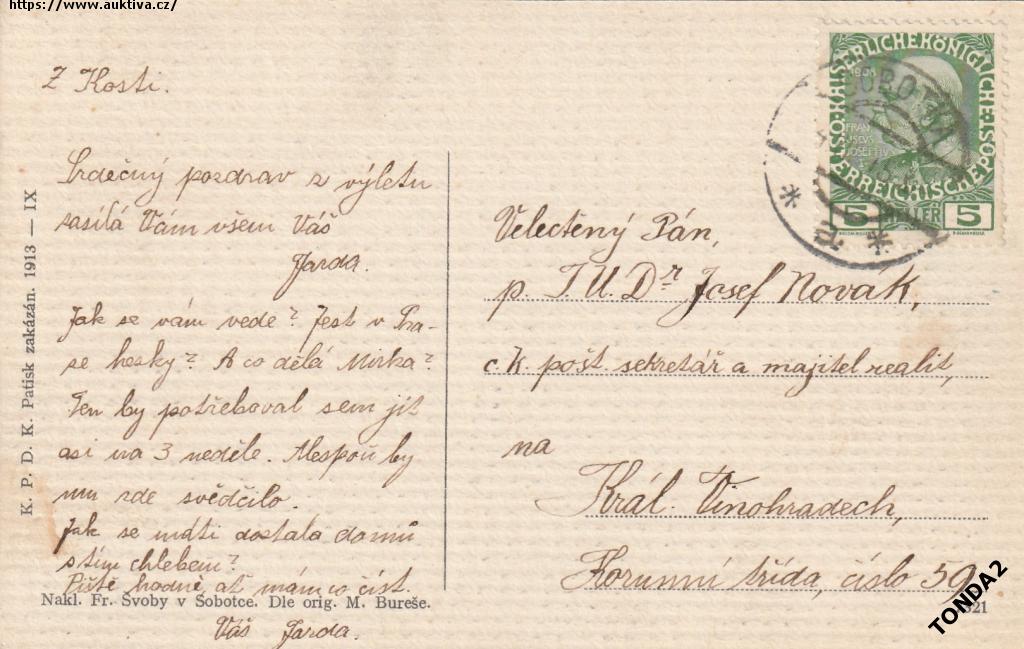 https://www.auktiva.cz/
Z Kosti.
Srdečný pozdrav z výletu
zasílá Vám všem Váš
Jarda.
Jak se vám vede? Jest v Pra-
ze hezky? A co dělá Mirka?
Ten by potřeboval sem jít
asi na 3 neděle. Alespoň by
mu zde svědčilo.
Jak se mutti dostala domů
s tím chlebem?
Pište hodně, ať mám co číst.
Váš Jarda.
K. P. D. K. Patisk zakázán. 1913 — IX
Nakl. Fr. Svoby v Sobotce. Dle orig. M. Bureše.
KAISERLICHE KÖNIGLICHE ÖSTERREICHISCHE POST
1908
5 HELLER 5
SOBOTKA
Velectěný Pán,
p. J.U.Dr Josef Novák,
c.k. pošt. sekretář a majitel realit,
na
Král. Vinohradech,
Korunní třída, číslo 59.
321
TONDA2